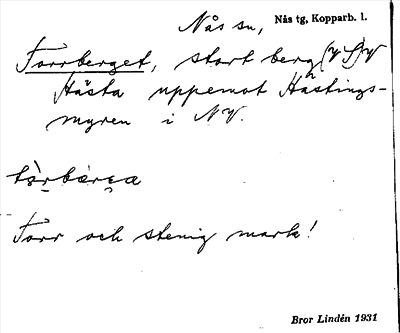 Nås sn, Nås tg, Kopparb. l.
Torrberget, stort berg (V S) V
Hästa uppemot Hästings-
myren i NV.
tòrbærɛa
Torr och stenig mark!
Bror Lindén 1931